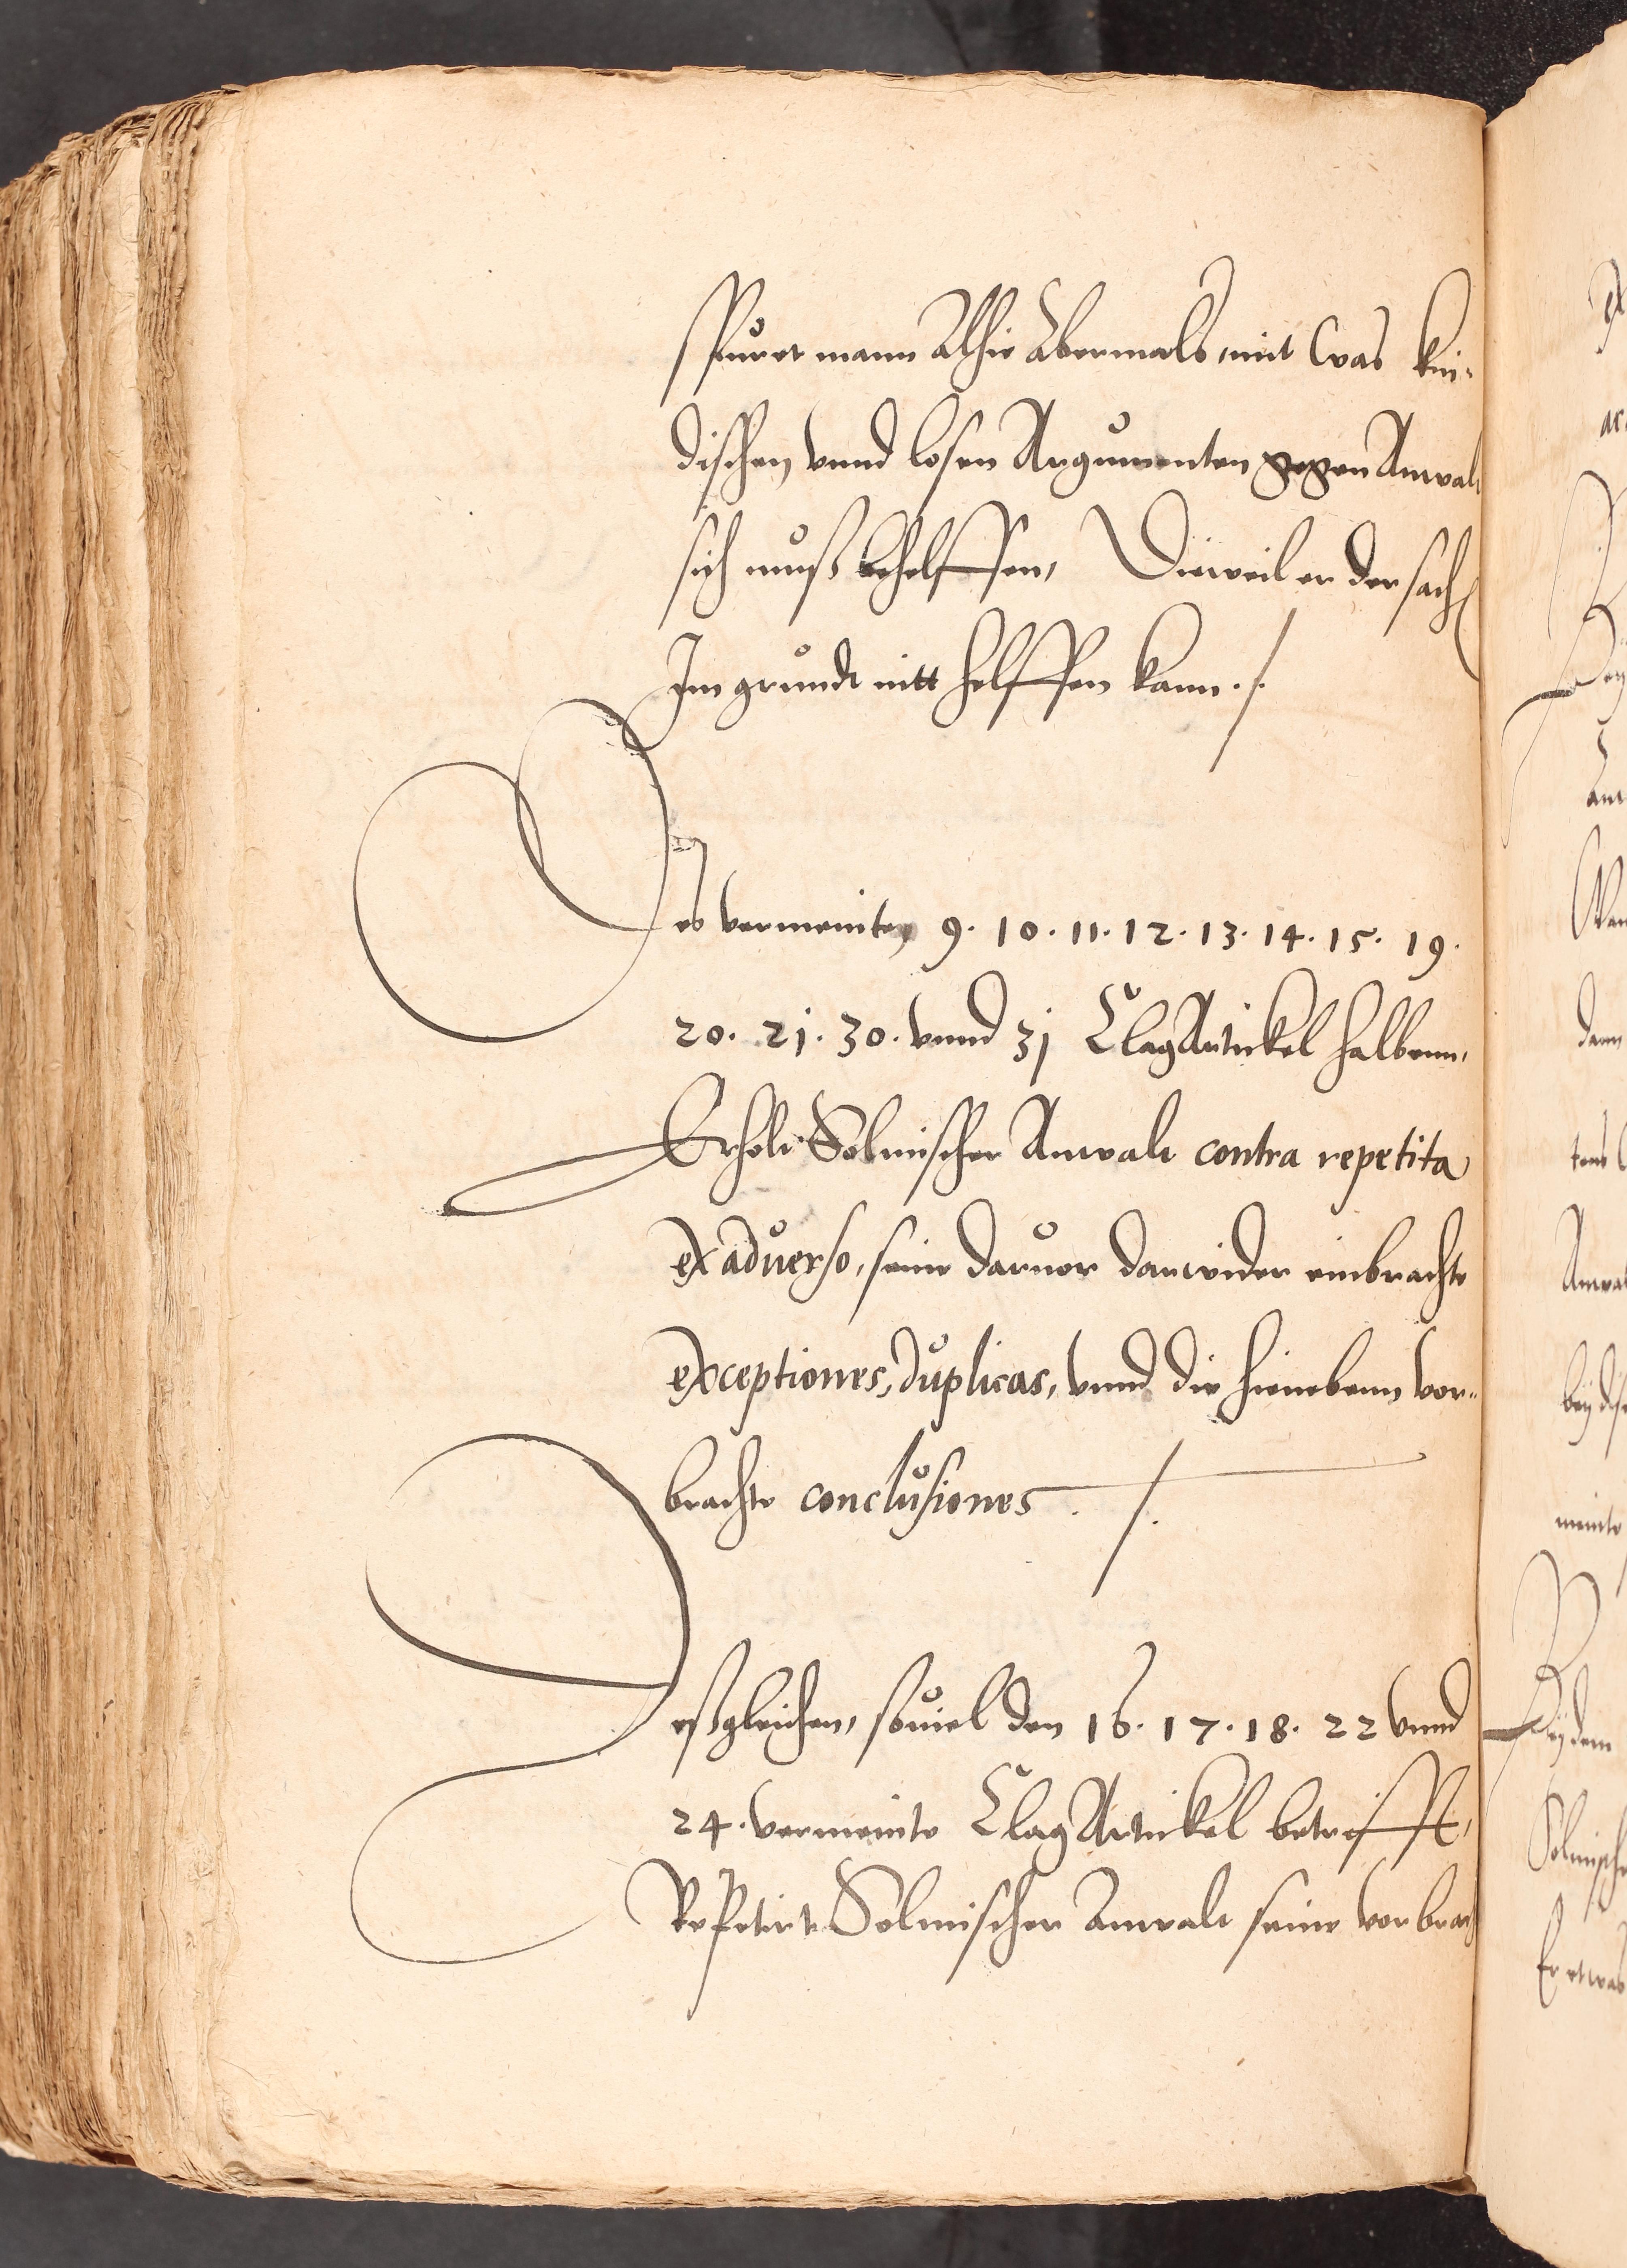 Spuret mann Alhie Abermals, mit was kin-
dischen vnnd losen Argumenten gegen Anwalt
sich muß behelffen, Dieweil er der sach
Im grundt nitt helffen kann ./.
Des vermeinten 9. 10. 11. 12. 13. 14. 15. 19.
20. 2j. 30. vnnd 3j Clag Artickel halbenn,
Erholt Solmischer Anwalt contra repetita
ex aduerso, seine daruor darwider einbrachte
exceptiones, duplicas, vnnd die hienebenn vor-
brachte conclusiones ./.
Deßgleichen, souiel den 16. 17. 18. 22 vnnd
24. vermeinte Clag Artickel betrifft,
Repetirt Solmischer Anwalt seine vorbrach